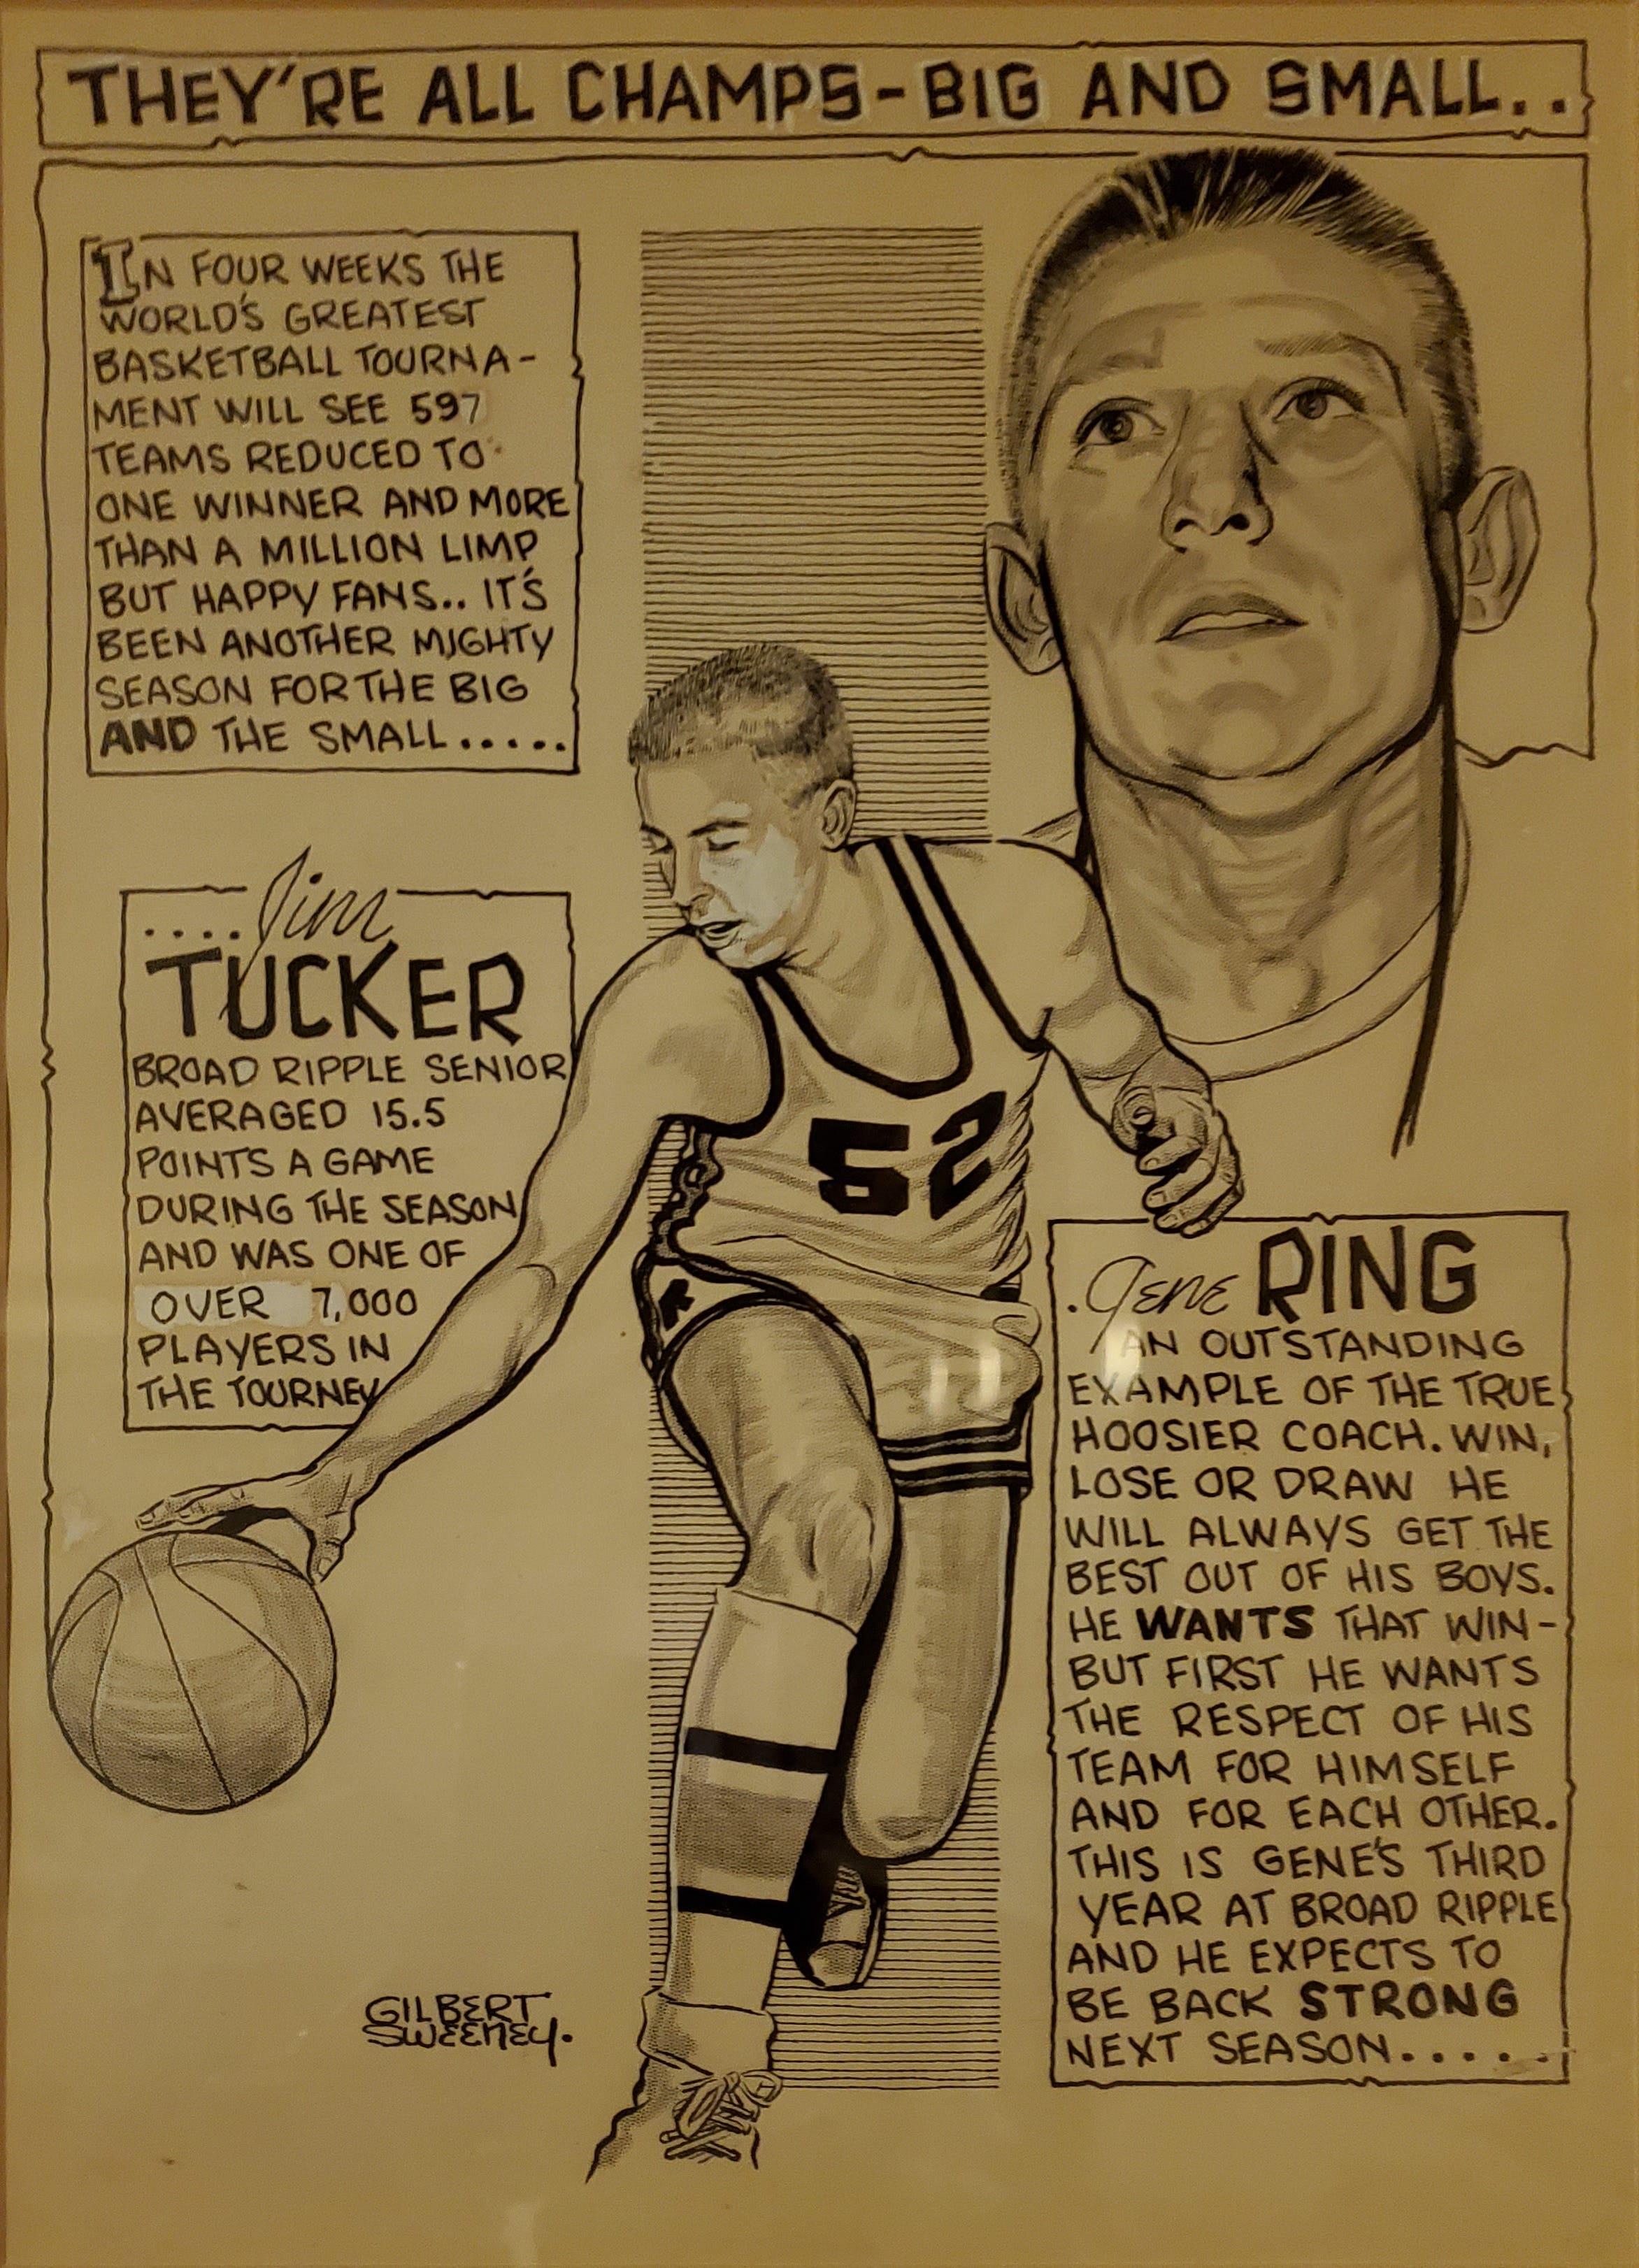 THEY'RE ALL CHAMPS-BIG AND SMALL..
IN FOUR WEEKS THE
WORLD'S GREATEST
BASKETBALL TOURNA-
MENT WILL SEE 597
TEAMS REDUCED TO
ONE WINNER AND MORE
THAN A MILLION LIMP
BUT HAPPY FANS.. IT'S
BEEN ANOTHER MIGHTY
SEASON FOR THE BIG
AND THE SMALL.....
....Jim
TUCKER
BROAD RIPPLE SENIOR
AVERAGED 15.5
POINTS A GAME
DURING THE SEASON
AND WAS ONE OF
OVER 7,000
PLAYERS IN
THE TOURNEY
52
R
.Gene RING
AN OUTSTANDING
EXAMPLE OF THE TRUE
HOOSIER COACH. WIN,
LOSE OR DRAW HE
WILL ALWAYS GET THE
BEST OUT OF HIS BOYS.
HE WANTS THAT WIN-
BUT FIRST HE WANTS
THE RESPECT OF HIS
TEAM FOR HIMSELF
AND FOR EACH OTHER.
THIS IS GENE'S THIRD
YEAR AT BROAD RIPPLE
AND HE EXPECTS TO
BE BACK STRONG
NEXT SEASON.....
GILBERT
SWEENEY.